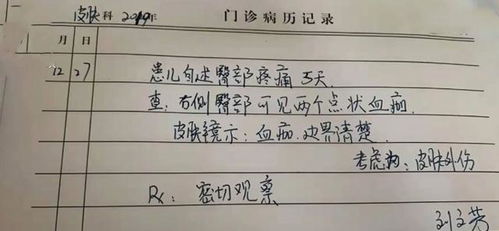 皮肤科 2019年 门诊病历记录
月 日
12 27 患儿自述臀部疼痛5天.
查:右侧臀部可见两个点状血痂.
皮肤镜示:血痂.边界清楚
考虑为:皮肤外伤
Rx: 密切观察
刘文芳